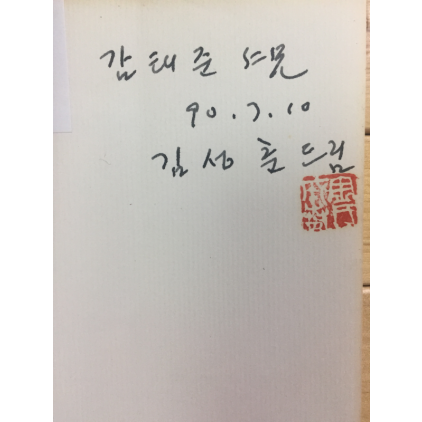 감태준 仁兄
90.7.10
김성춘 드림